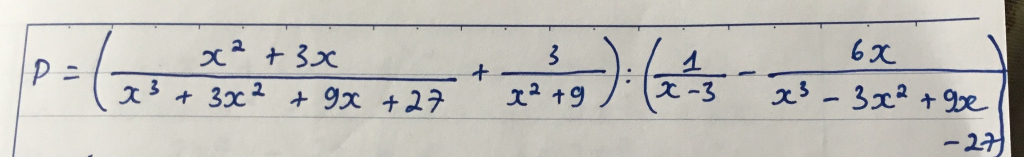 P = ( \frac{x² + 3x}{x³ + 3x² + 9x + 27} + \frac{3}{x² + 9} ) : ( \frac{1}{x - 3} - \frac{6x}{x³ - 3x² + 9x - 27} )